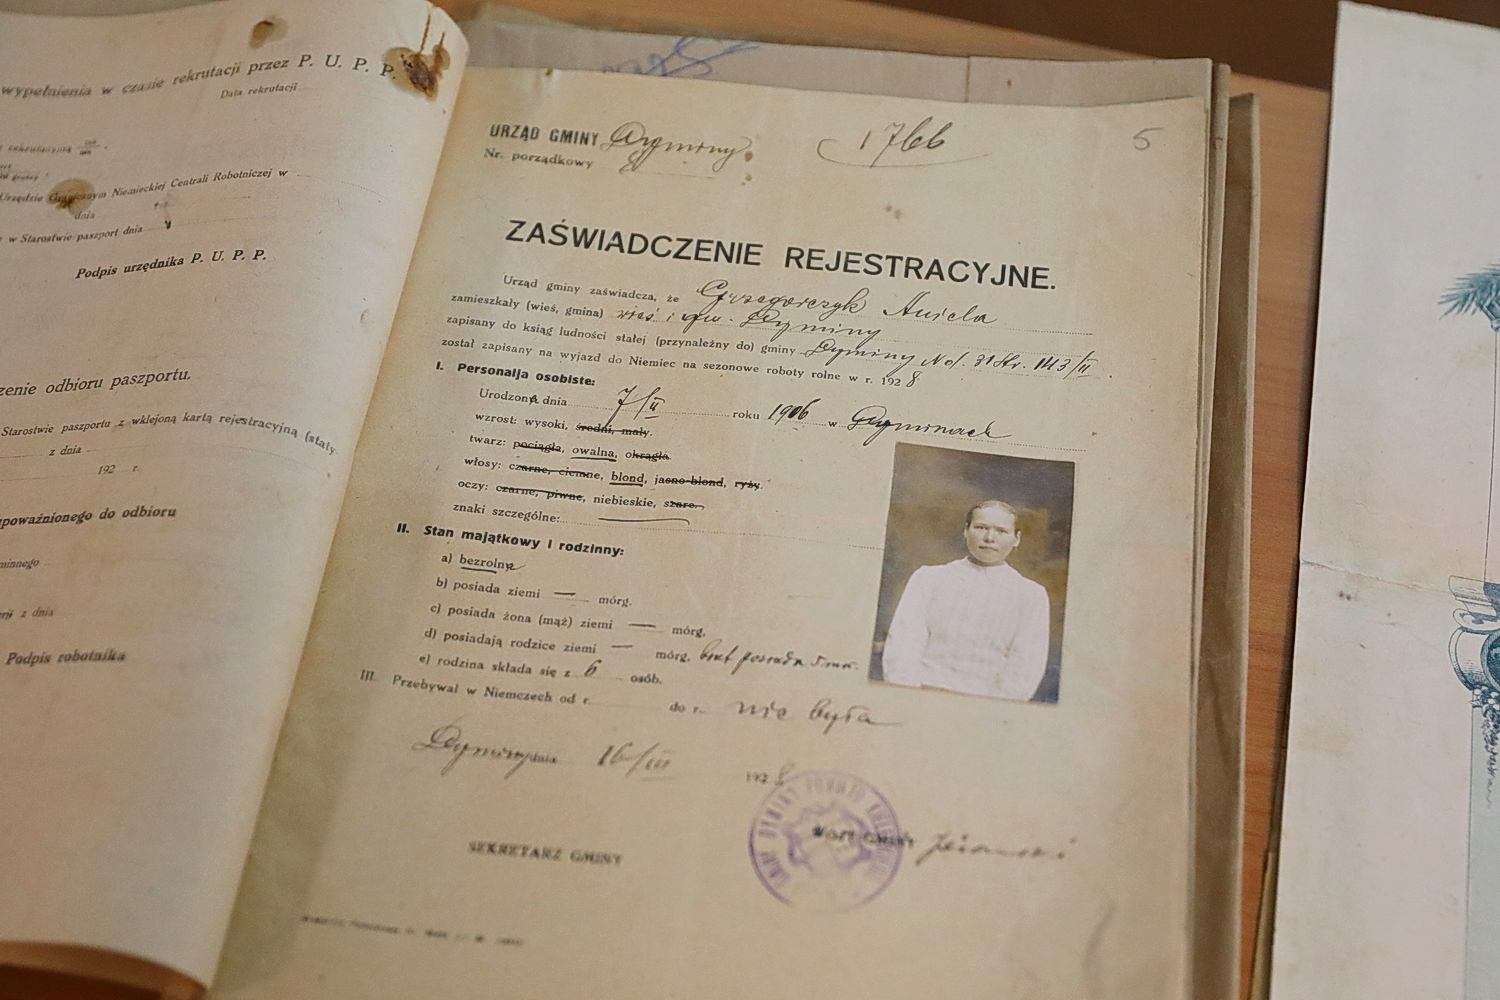 wypełnienia w czasie rekrutacji przez P. U. P. P.
Data rekrutacji
Urzędzie Granicznym Niemieckiej Centrali Robotniczej w
dnia
w Starostwie paszport dnia
Podpis urzędnika P. U. P. P.
zenie odbioru paszportu.
Starostwie paszportu z wklejoną kartą rejestracyjną (stały.
z dnia
192 r.
poważnionego do odbioru
minnego
z dnia
Podpis robotnika
URZĄD GMINY Dyminy
Nr. porządkowy
1766
5
ZAŚWIADCZENIE REJESTRACYJNE.
Urząd gminy zaświadcza, że Grzegorczyk Aniela
zamieszkały (wieś, gmina) wieś i gm. Dyminy
zapisany do ksiąg ludności stałej (przynależny do) gminy Dyminy No. 31 str. 143/II
został zapisany na wyjazd do Niemiec na sezonowe roboty rolne w r. 1928
I. Personalja osobiste:
Urodzona dnia 7/II roku 1906 w Dyminach
wzrost: wysoki, średni, mały.
twarz: pociągła, owalna, okrągła
włosy: czarne, ciemne, blond, jasno-blond, ryży.
oczy: czarne, piwne, niebieskie, szare.
znaki szczególne:
II. Stan majątkowy i rodzinny:
a) bezrolny
b) posiada ziemi — mórg.
c) posiada żona (mąż) ziemi — mórg,
d) posiadają rodzice ziemi — mórg, brat posiada 5 mr.
e) rodzina składa się z 6 osób.
III. Przebywał w Niemczech od r. do r. nie była
Dyminy dnia 16/III 1928
SEKRETARZ GMINY
WÓJT GMINY